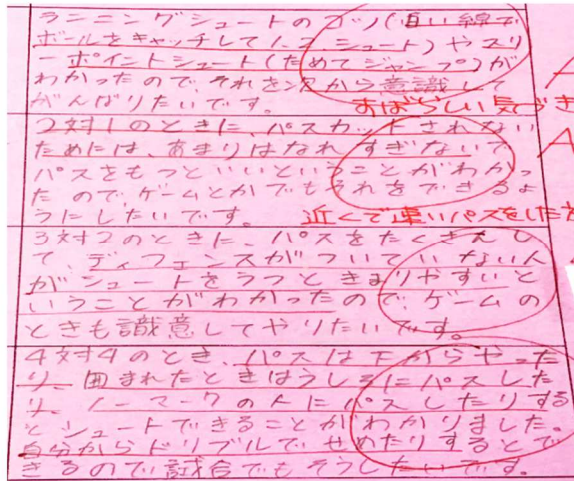 ランニングシュートのコツ(直い線で
ボールをキャッチして1、2、シュート)やスリ
ーポイントシュート(ためてジャンプ)が
わかったので、それを次から意識して
がんばりたいです。
すばらしい気づき
2対1のときに、パスカットされない
ためには、あまりはなれすぎないで
パスをもつといいということがわかっ
たので、ゲームとかでもそれをできるよ
うにしたいです。
近くで速いパスをした方
3対2のときに、パスをたくさんし
て、ディフェンスがついていない人
がシュートをうつときまりやすいと
いうことがわかったのでゲームの
ときも識意してやりたいです。
4対4のとき、パスは下からやった
り、囲まれたときはうしろにパスした
り、ノーマークの人にパスしたりする
とシュートできることがわかりました。
自分からドリブルでせめたりするとで
きるので試合でもそうしたいです。
A
A